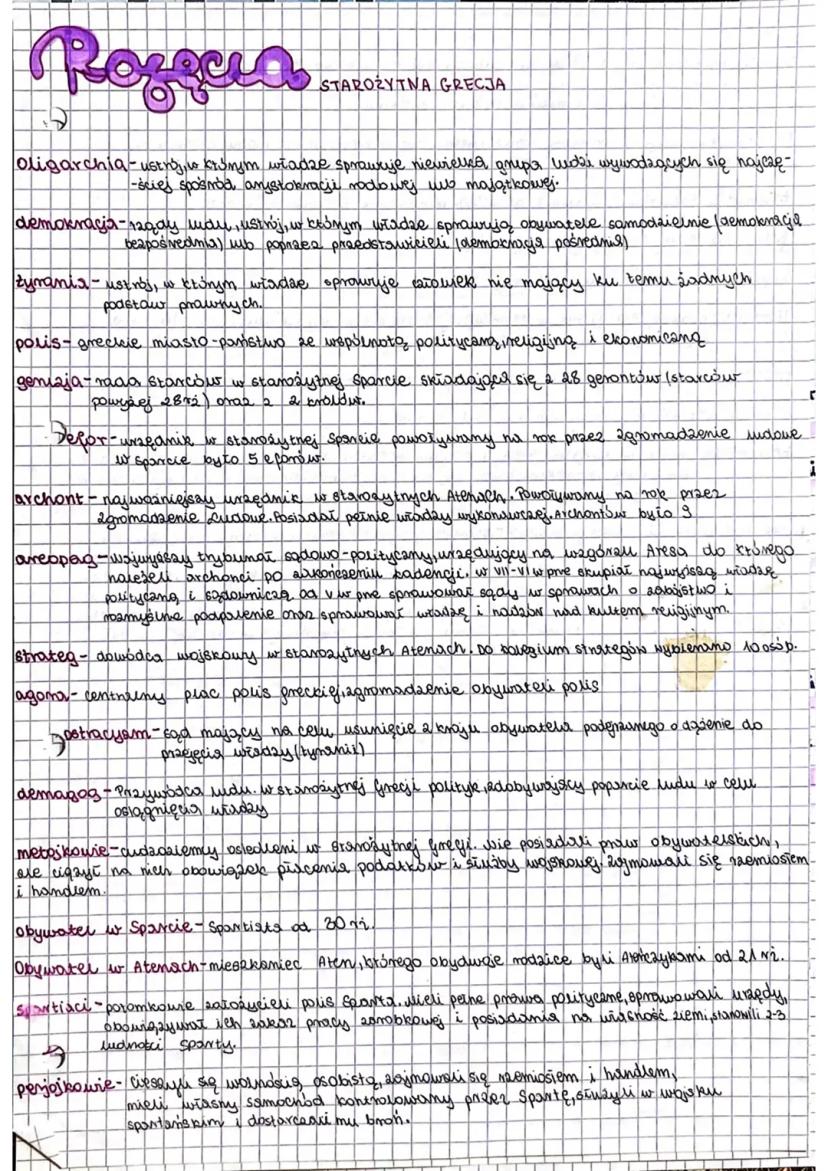 Pojęcia STAROŻYTNA GRECJA
oligarchia - ustrój, w którym władzę sprawuje niewielka grupa ludzi wywodzących się najczę-
-ściej spośród arystokracji rodowej lub majątkowej.
demokracja - rządy ludu, ustrój, w którym władzę sprawują obywatele samodzielnie (demokracja
bezpośrednia) lub poprzez przedstawicieli (demokracja pośrednia)
tyrania - ustrój, w którym władzę sprawuje człowiek nie mający ku temu żadnych
podstaw prawnych.
polis - greckie miasto-państwo ze wspólnotą polityczną, religijną i ekonomiczną
geruzja - rada starców w starożytnej Sparcie składająca się z 28 gerontów (starców
powyżej 28 rż) oraz z 2 królów.
efor - urzędnik w starożytnej Sparcie powoływany na rok przez zgromadzenie ludowe
w Sparcie było 5 eforów.
archont - najważniejszy urzędnik w starożytnych Atenach. Powoływany na rok przez
zgromadzenie Ludowe. Posiadał pełnię władzy wykonawczej. Archontów było 9
areopag - najwyższy trybunał sądowo-polityczny, urzędujący na wzgórzu Aresa do którego
należeli archonci po zakończeniu kadencji. w VII-VI w pne skupiał najwyższą władzę
polityczną i sądowniczą od V w pne sprawował sądy w sprawach o zabójstwo i
rozmyślne podpalenie oraz sprawował władzę i nadzór nad kultem religijnym.
strateg - dowódca wojskowy w starożytnych Atenach. Do kolegium strategów wybierano 10 osób.
agora - centralny plac polis greckiej, zgromadzenie obywateli polis
ostracyzm - sąd mający na celu usunięcie z kraju obywatela podejrzanego o dążenie do
przejęcia władzy (tyranii)
demagog - Przywódca ludu. w starożytnej Grecji polityk, zdobywający poparcie ludu w celu
osiągnięcia władzy
metojkowie - cudzoziemcy osiedleni w starożytnej Grecji. Nie posiadali praw obywatelskich,
ale ciążył na nich obowiązek płacenia podatków i służby wojskowej. Zajmowali się rzemiosłem
i handlem.
Obywatel w Sparcie - Spartiata od 30 rż.
Obywatel w Atenach - mieszkaniec Aten, którego obydwoje rodzice byli Ateńczykami od 21 rż.
spartiaci - potomkowie założycieli polis Sparta. Mieli pełne prawa polityczne, sprawowali urzędy,
obowiązywał ich zakaz pracy zarobkowej i posiadania na własność ziemi, stanowili 2-3
ludności Sparty.
periojkowie - Cieszyli się wolnością osobistą, zajmowali się rzemiosłem i handlem,
mieli własny samochód kontrolowany przez Spartę, służyli w wojsku
spartańskim i dostarczali mu broń.